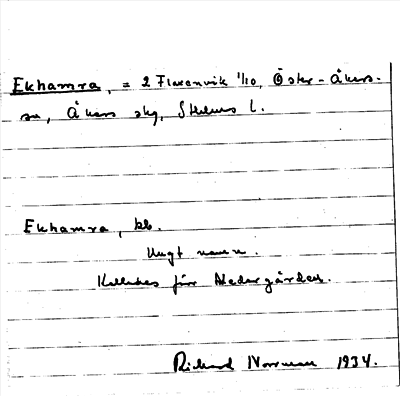 Ekhamra, = 2 Flaxenvik 1/10, Öster-Åkers-
sn, Åkers skg, Sthlms l.
Ekhamra, bb.
Ungt namn.
Kallades förr Nedergården.
Rickard Norrman 1934.